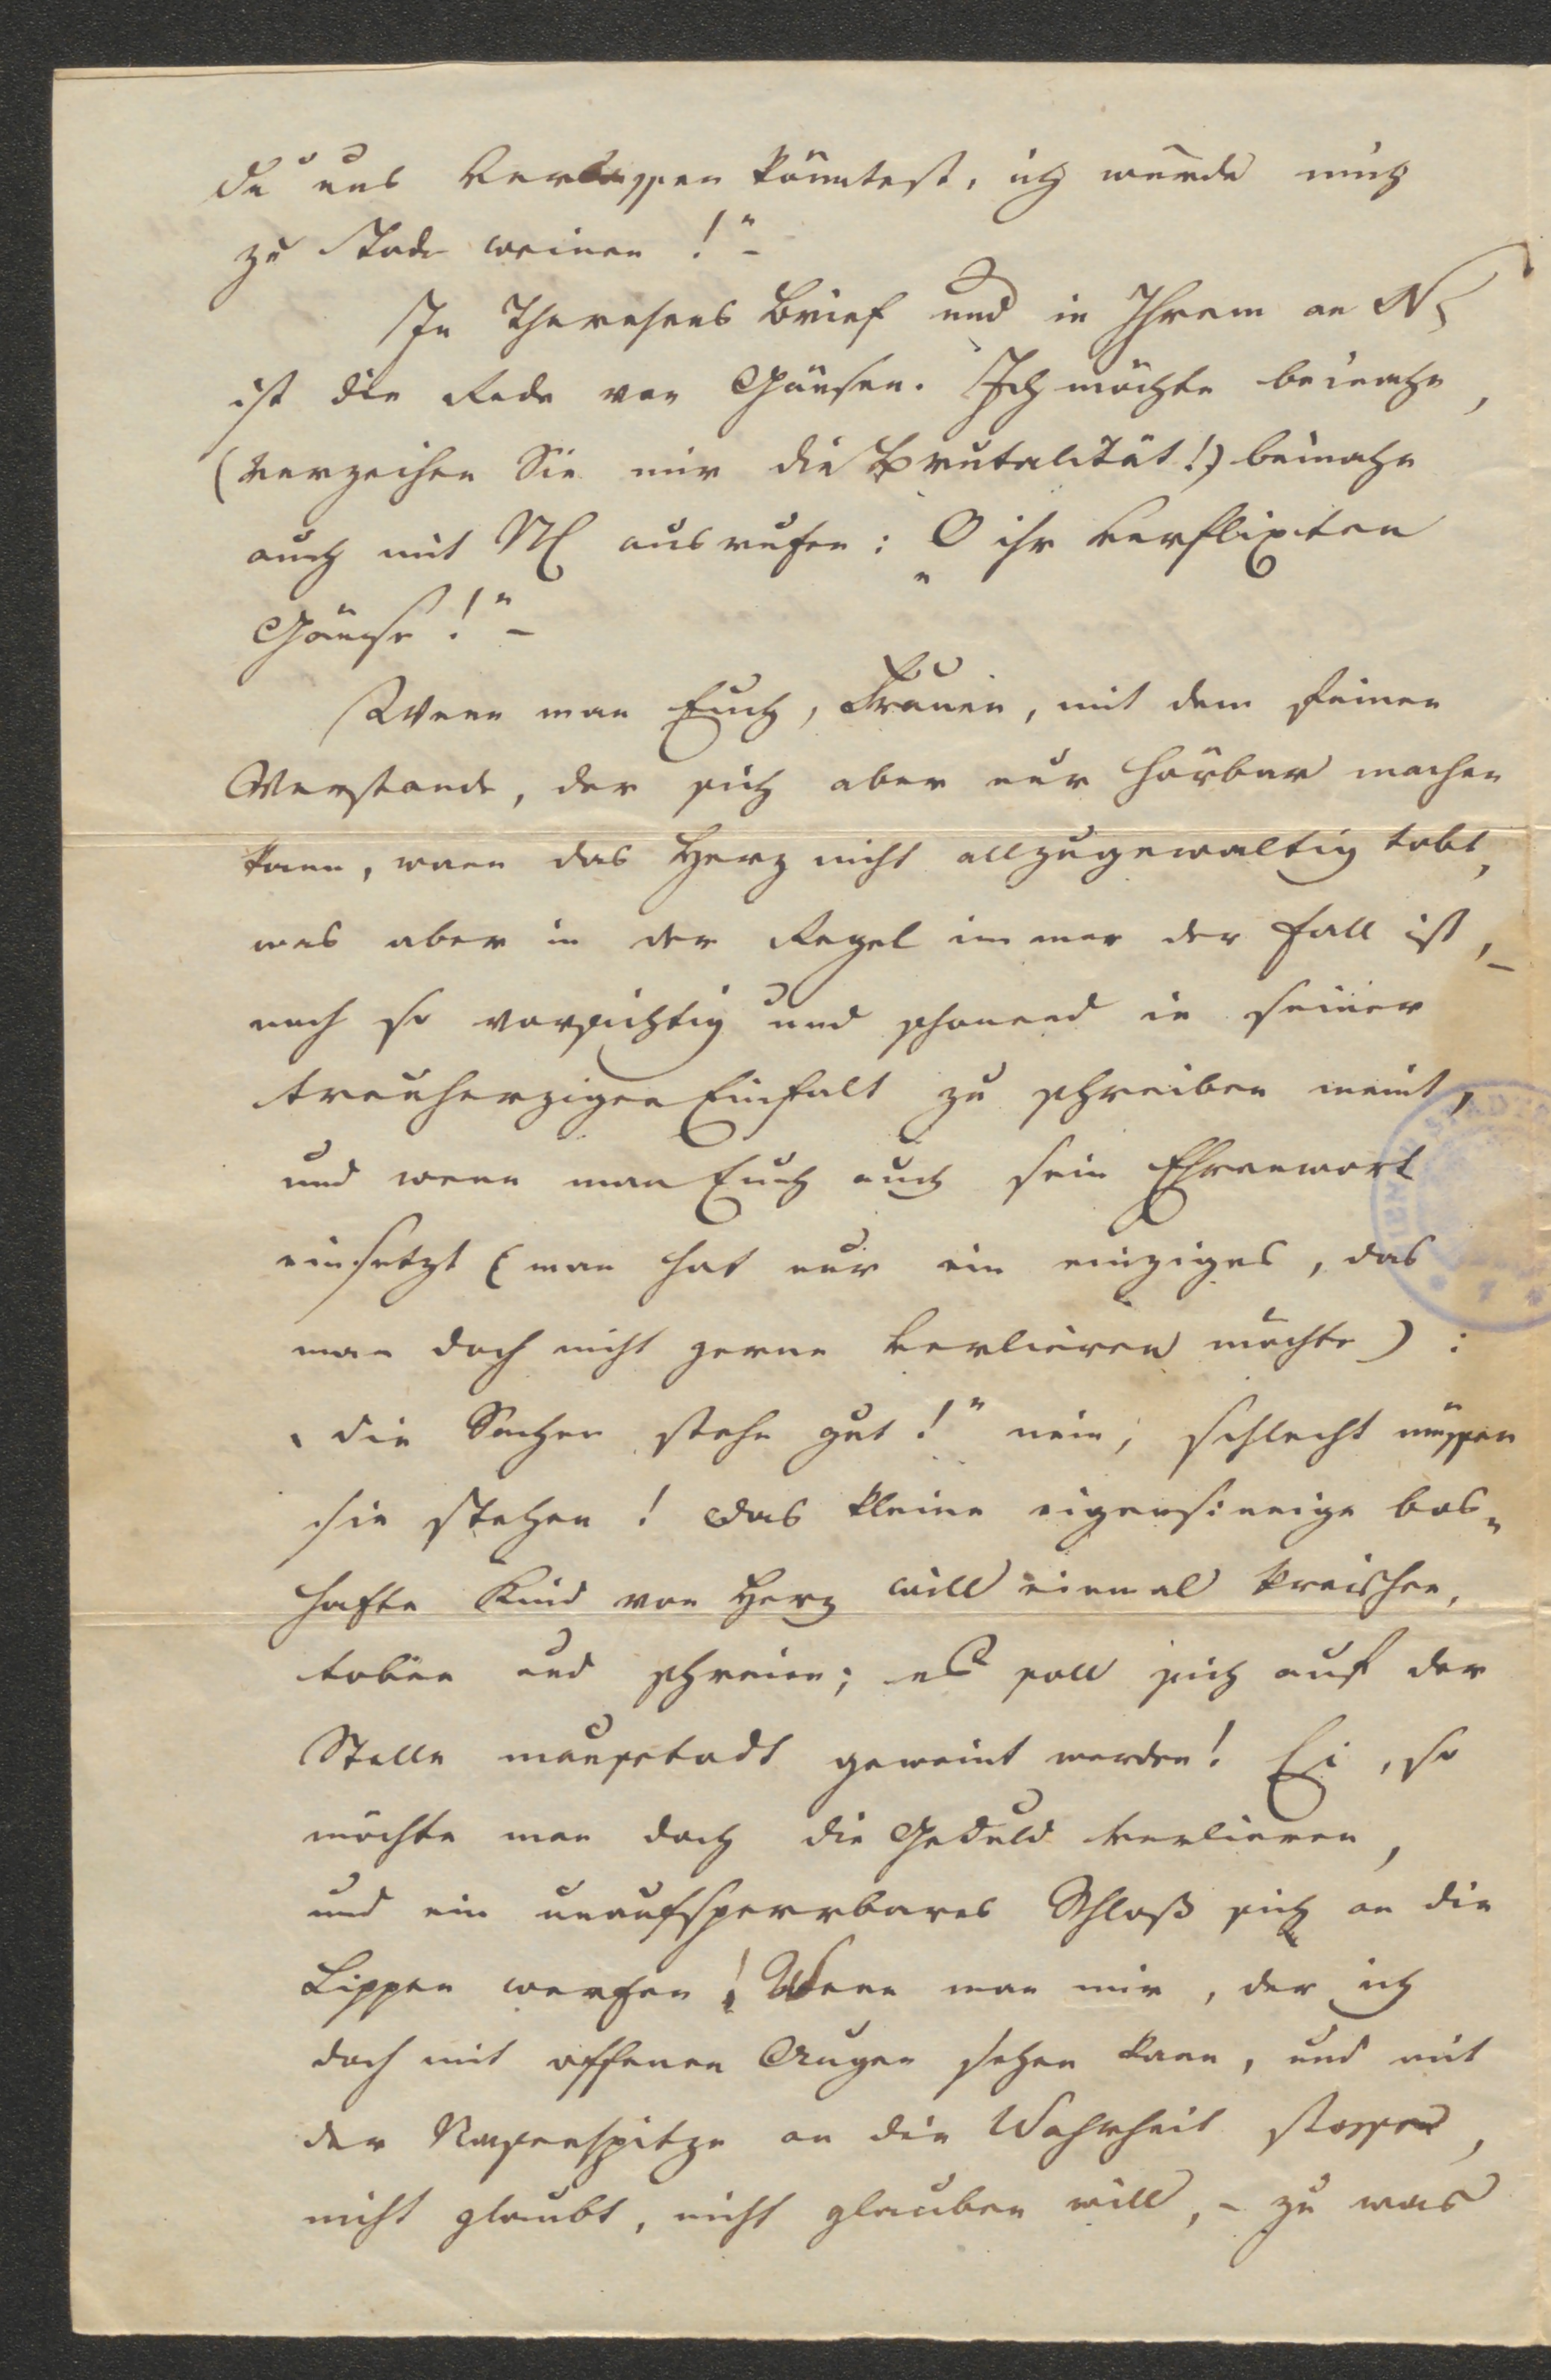 du uns verlassen könntest, ich würde mich
zu Tode weinen!“ –
In Theresens Brief und in Ihrem an N
ist die Rede von Gänsen. Ich möchte beinahe,
(verzeihen Sie mir die Brutalität!) beinahe
auch mit N ausrufen: „O ihr verflixten
Gänse!“ –
Wenn man Euch, Frauen, mit dem feinen
Verstande, der sich aber nur hörbar machen
kann, wenn das Herz nicht allzugewaltig tobt,
was aber in der Regel immer der Fall ist, –
noch so vorsichtig und schonend in seiner
treuherzigen Einfalt zu schreiben meint,
und wenn man Euch auch sein Ehrenwort
einsetzt (man hat nur ein einziges, das
man doch nicht gerne verlieren möchte):
„die Sachen stehn gut!“ nein, schlecht müssen
sie stehen! Das kleine eigensinnige bos-
hafte Kind von Herz will einmal kreischen,
toben und schreien; es soll sich auf der
Stelle maustodt geweint werden! Ei, so
möchte man doch die Geduld verlieren,
und ein unaufsperrbares Schloß sich an die
Lippen werfen! Wenn man mir, der ich
doch mit offenen Augen sehen kann, und mit
der Nasenspitze an die Wahrheit stossen,
nicht glaubt, nicht glauben will, – zu was